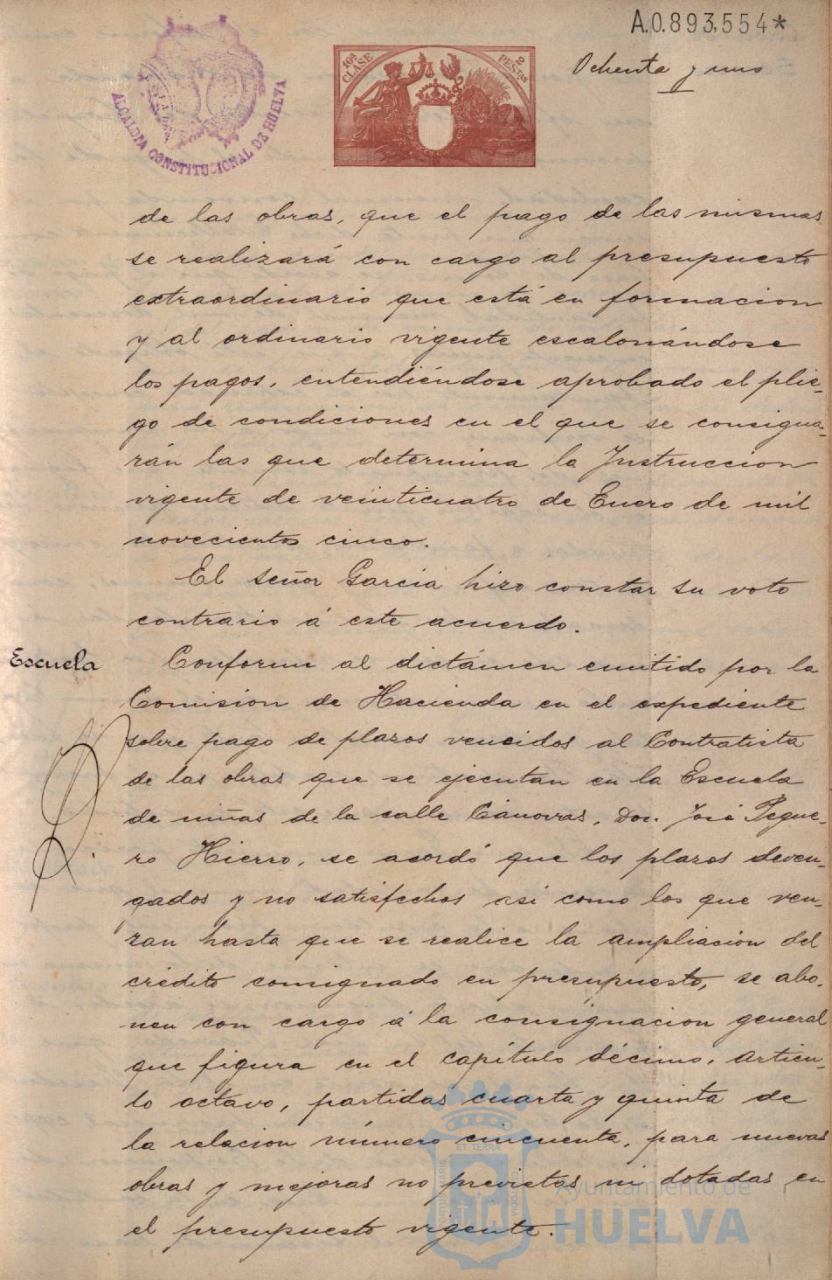 A.0.893,554*
Ochenta y uno
10ª CLASE
2 PESTAS
ALCALDIA CONSTITUCIONAL DE HUELVA
de las obras, que el pago de las mismas
se realizará con cargo al presupuesto
extraordinario que está en formacion
y al ordinario vigente escalonándose
los pagos, entendiéndose aprobado el plie-
go de condiciones en el que se consigna-
rán las que determina la Instruccion
vigente de veinticuatro de Enero de mil
novecientos cinco.
El señor Garcia hizo constar su voto
contrario á este acuerdo.
Escuela
Conforme al dictámen emitido por la
Comision de Hacienda en el expediente
sobre pago de plazos vencidos al Contratista
de las obras que se ejecutan en la Escuela
de niñas de la calle Cánovas, Don José Pegue-
ro Hierro, se acordó que los plazos deven-
gados y no satisfechos así como los que ven-
zan hasta que se realice la ampliacion del
crédito consignado en presupuesto, se abo-
nen con cargo á la consignacion general
que figura en el capítulo décimo, artícu-
lo octavo, partidas cuarta y quinta de
la relacion número cincuenta, para nuevas
obras y mejoras no previstas ni dotadas en
el presupuesto vigente.
Ayuntamiento de
HUELVA